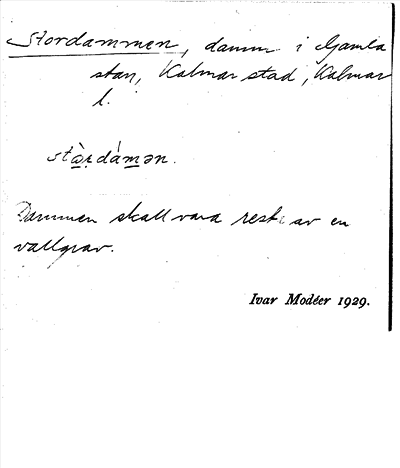 Stordammen, damm i Gamla
stan, Kalmar stad, Kalmar
l.
stàrdámən.
Dammen skall vara rest av en
vallgrav.
Ivar Modéer 1929.